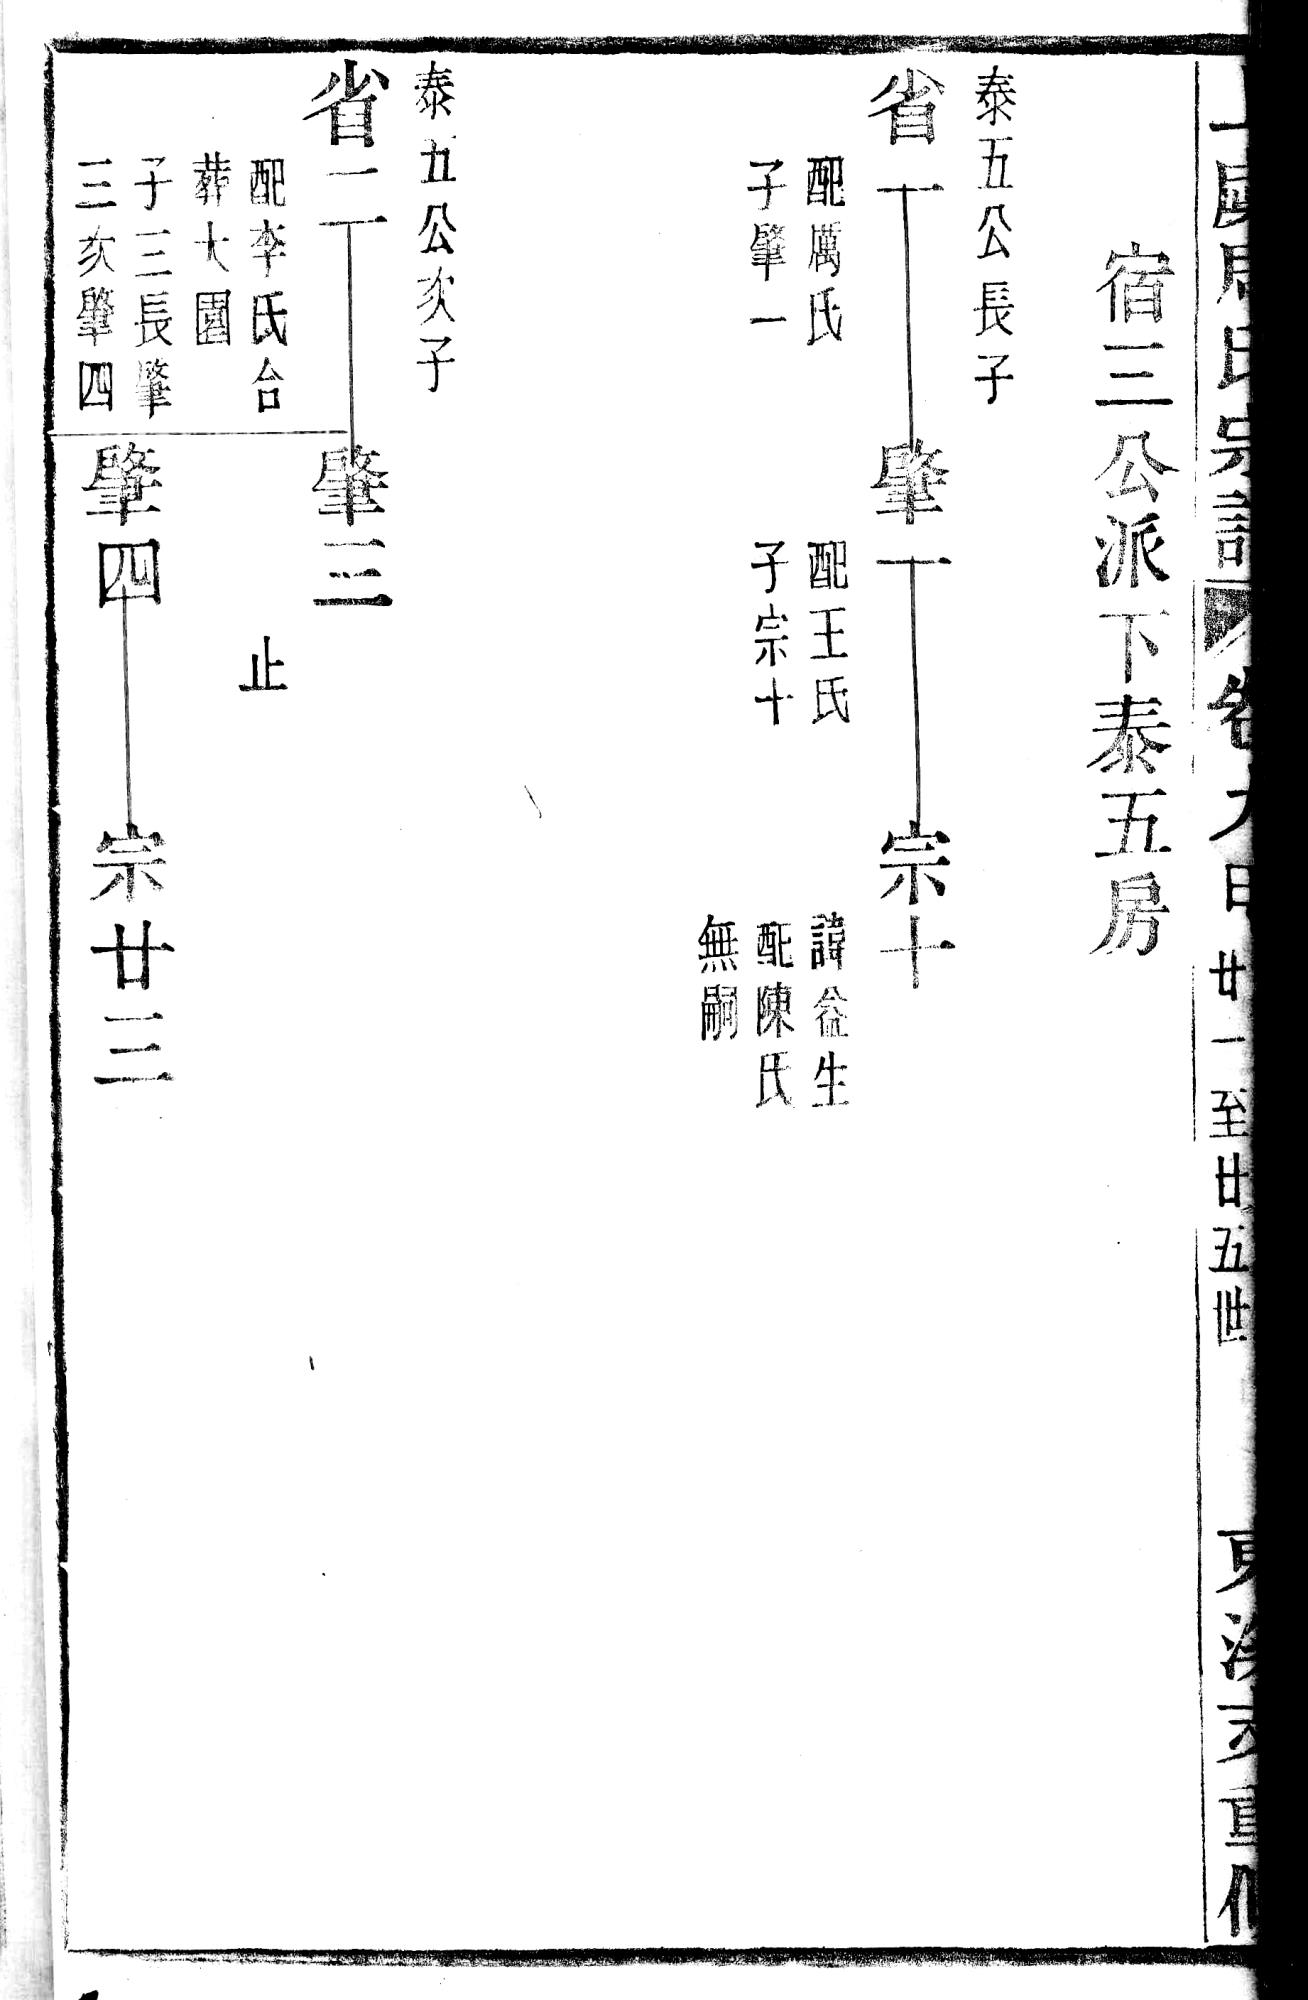 周氏宗譜 卷九 廿一至廿五世 重修
宿三公派下泰五房
泰五公長子
省一 肇一 宗十
配厲氏
子肇一
配王氏
子宗十
諱益生
配陳氏
無嗣
泰五公次子
省二 肇三
配李氏合
葬大園
子三長肇
三次肇四
止
肇四 宗廿三